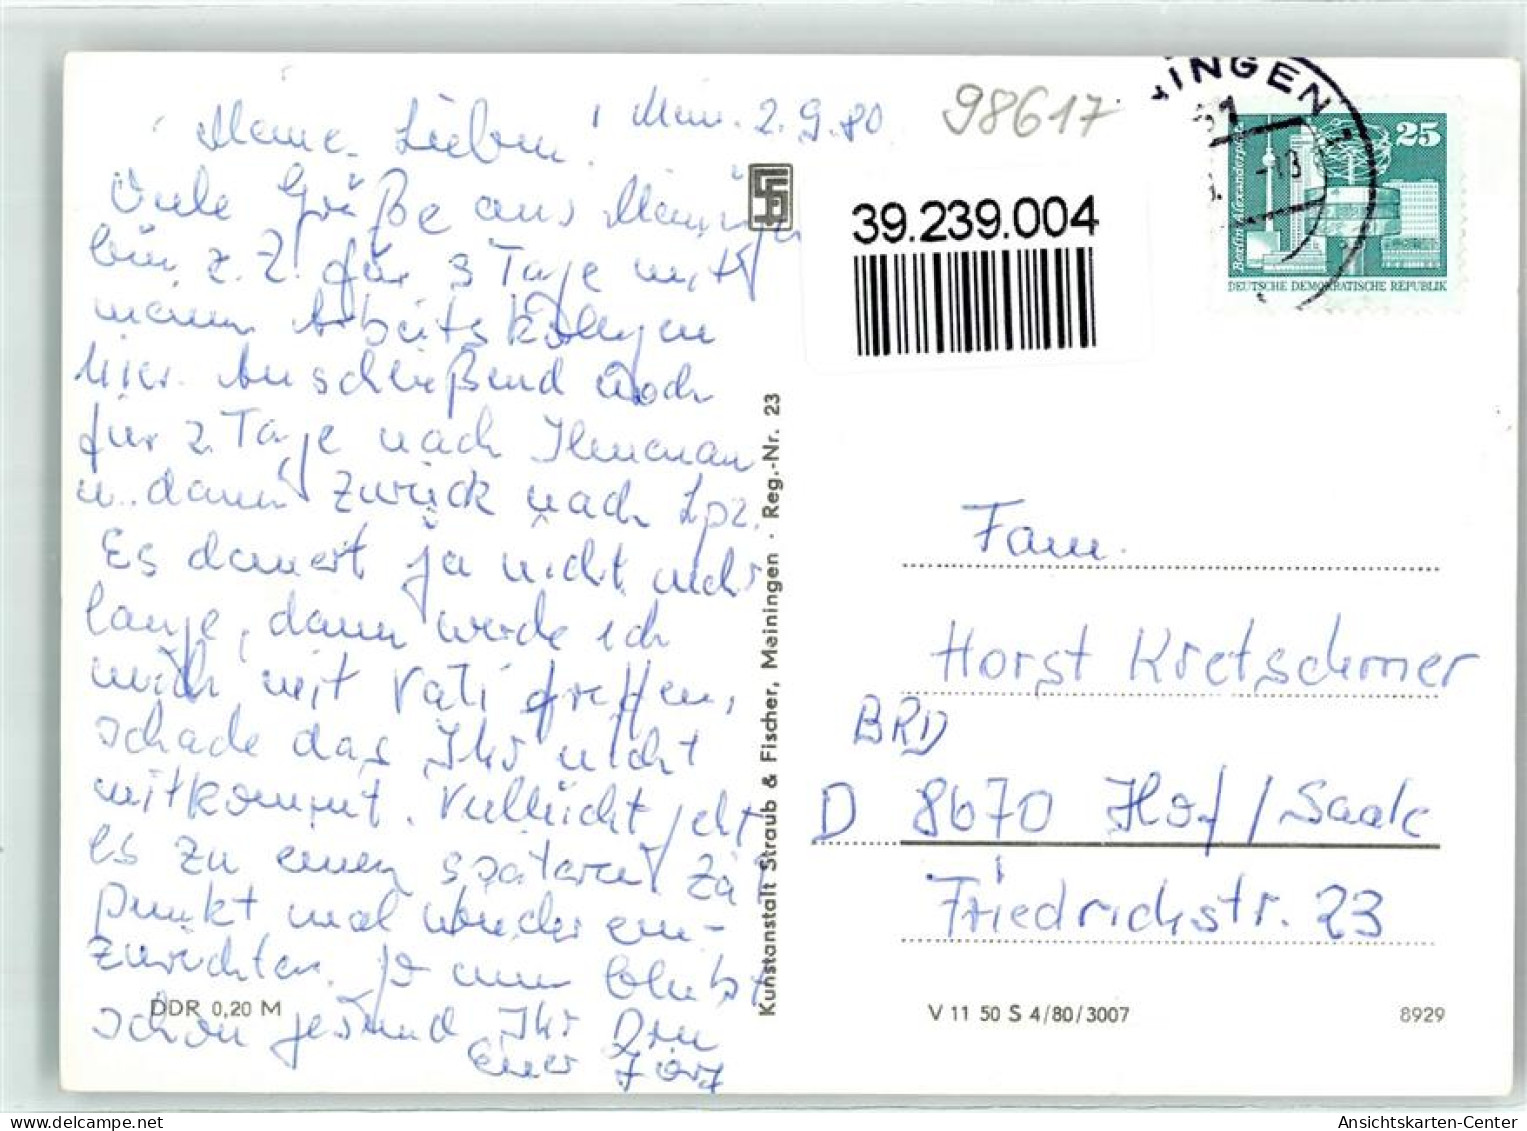 Mein. 2.9.80
Meine Lieben!
Viele Grüße aus Meiningen
bin z.Z. für 3 Tage mit
meinen Arbeitskollegen
hier. Anschließend noch
für 2 Tage nach Ilmenau
u. dann zurück nach Lpz.
Es dauert ja nicht mehr
lange, dann werde ich
mich mit Vati treffen,
schade das Ihr nicht
mitkommt. Vielleicht geht
es zu einen späteren Zeit
punkt mal wieder ein-
zurichten. So nun bleibt
schön gesund Ihr Drei
Euer Jörg
DDR 0,20 M
Kunstanstalt Straub & Fischer, Meiningen · Reg.-Nr. 23
98617
39.239.004
INGEN 1
61
-18
25
Berlin, Alexanderplatz
DEUTSCHE DEMOKRATISCHE REPUBLIK
Fam.
Horst Kretschmer
BRD
D 8670 Hof/Saale
Friedrichstr. 23
V 11 50 S 4/80/3007
8929
Ansichtskarten-Center